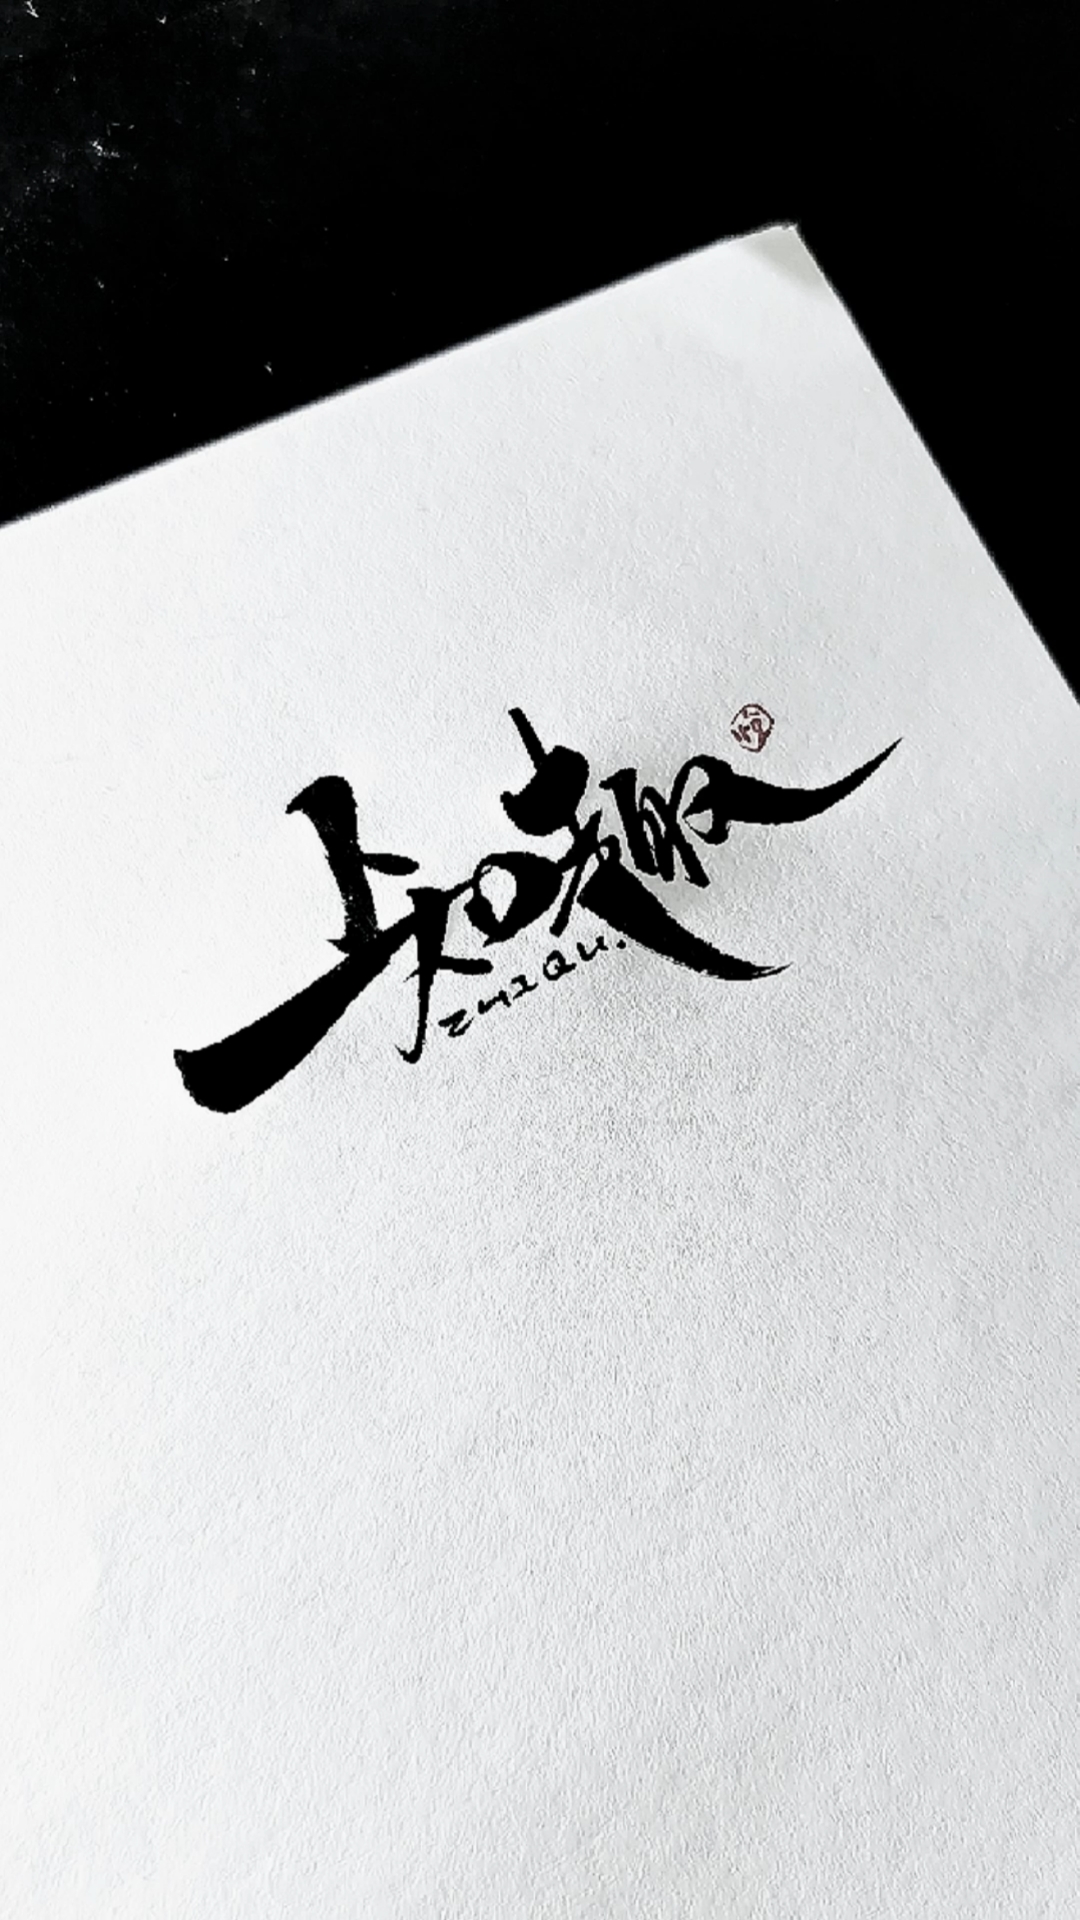 知趣
ZHIQU.